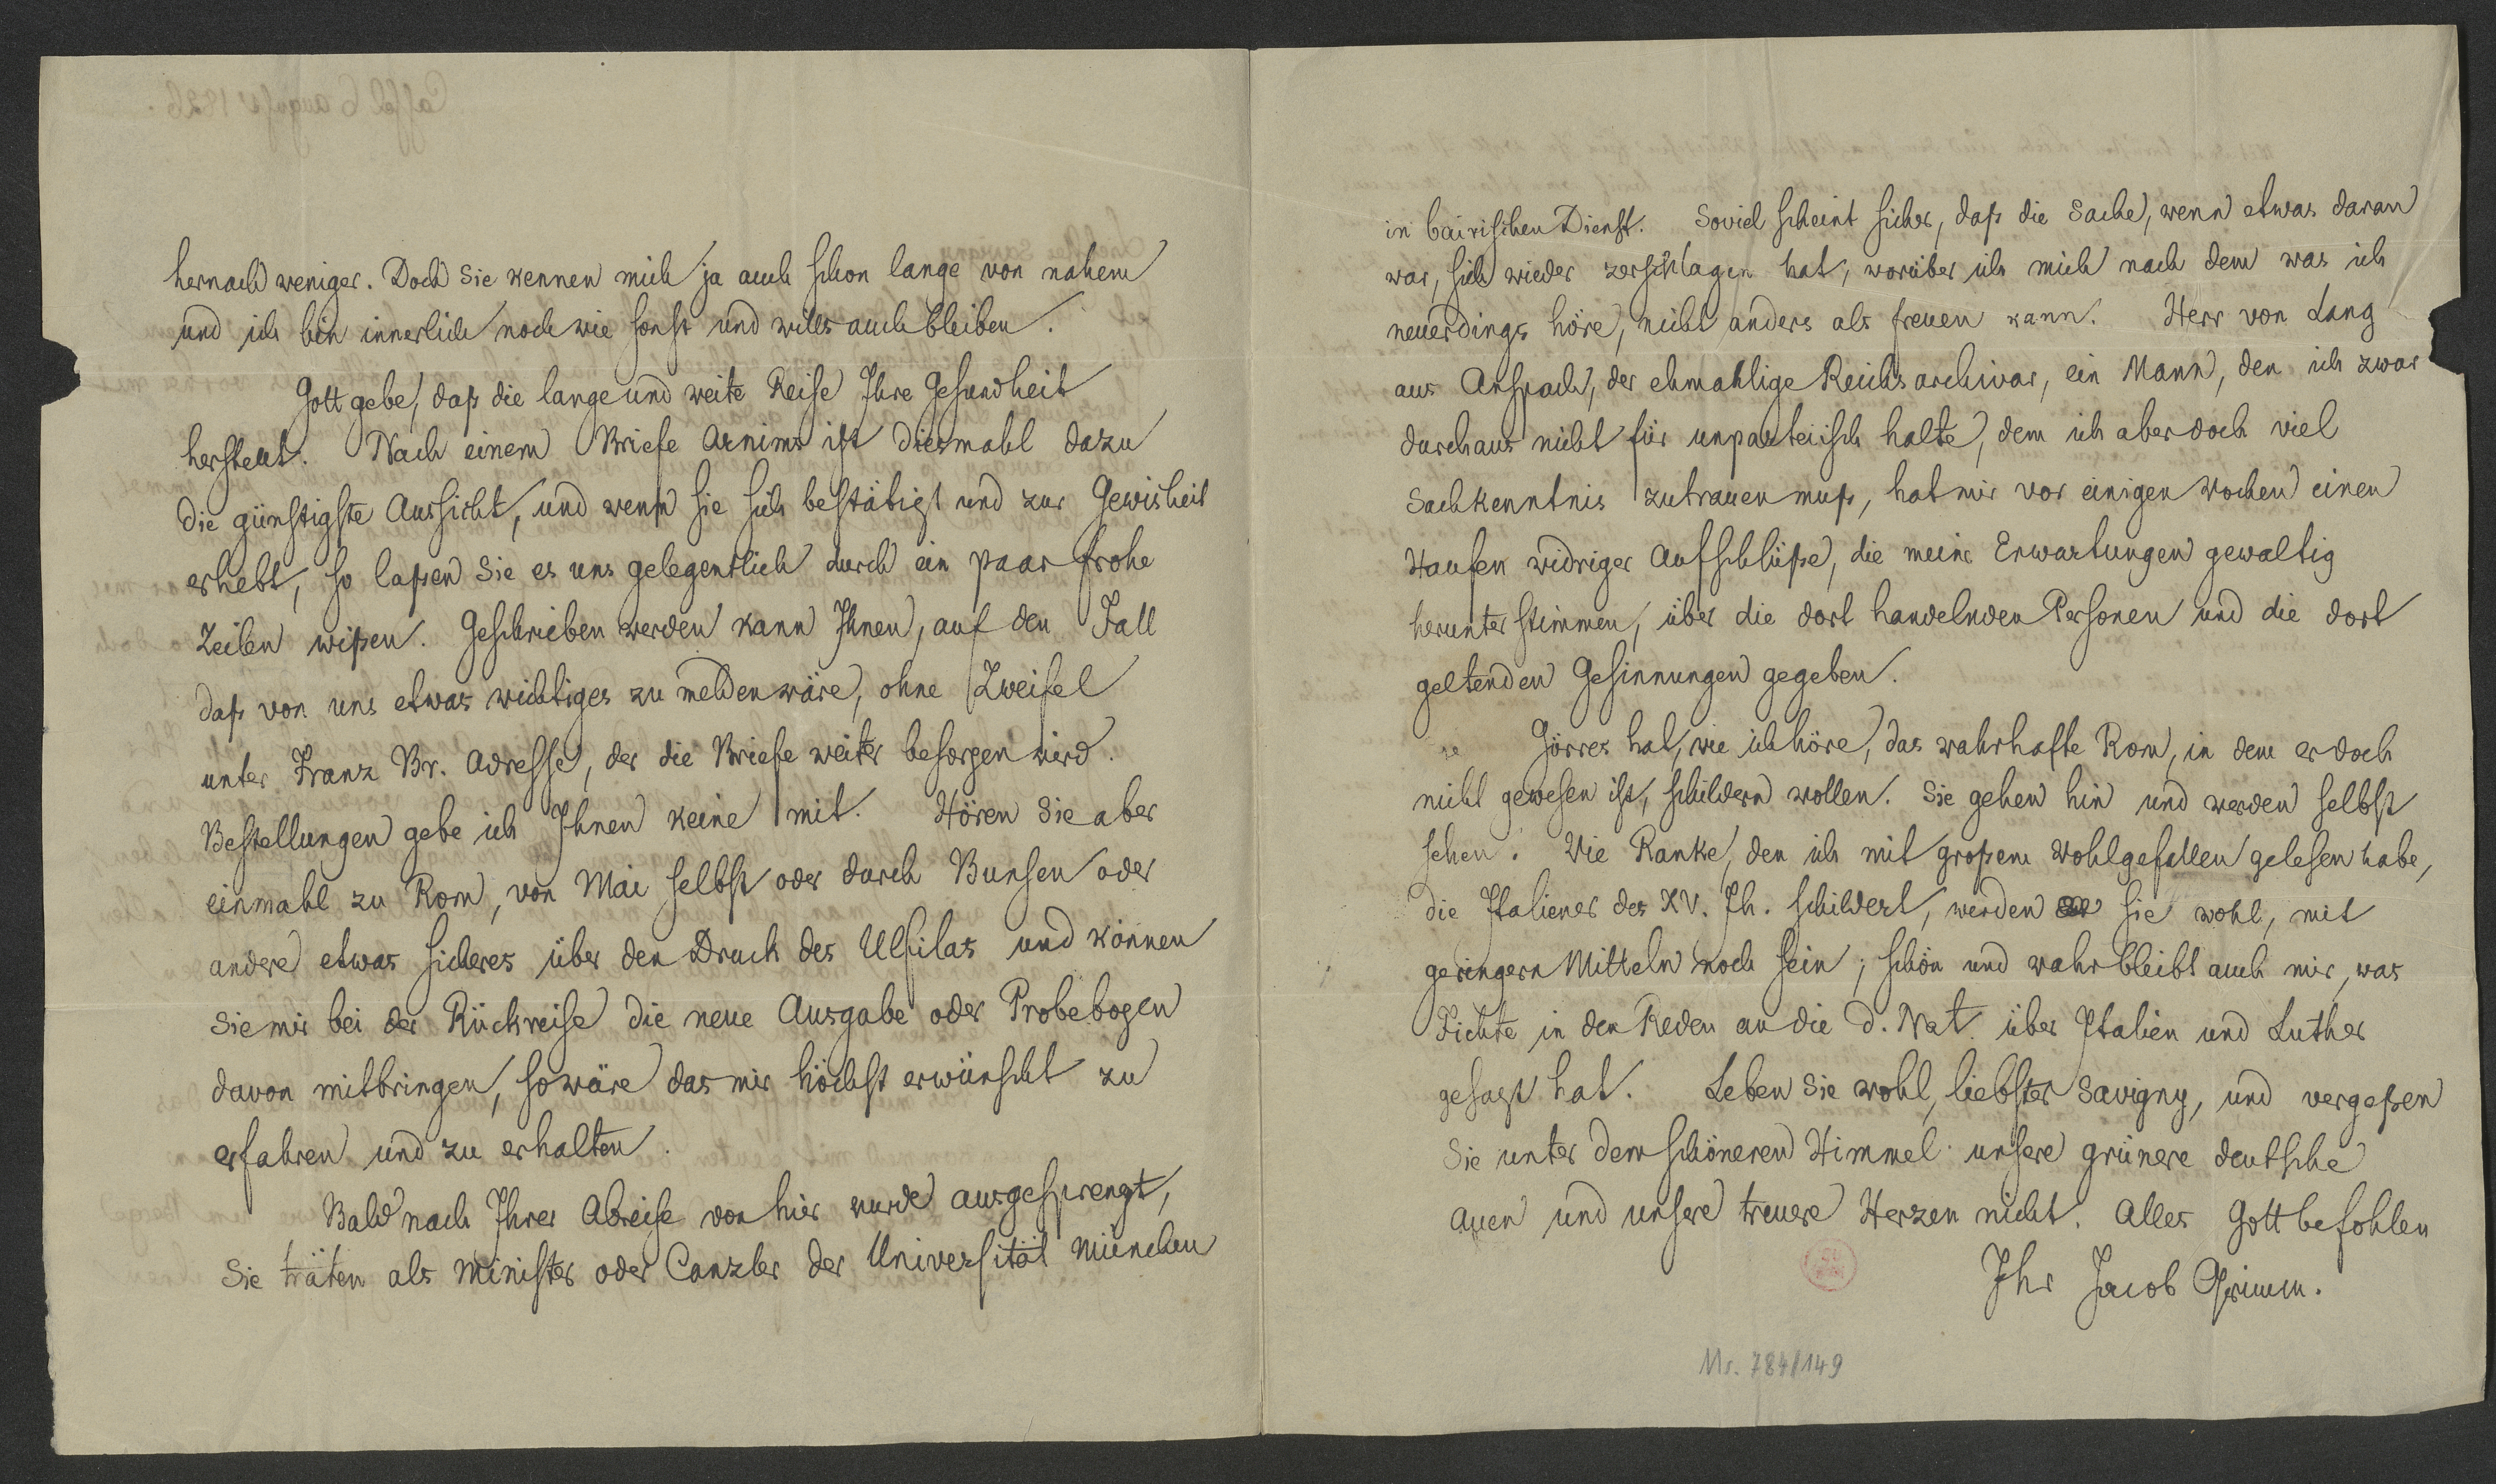 hernach weniger. Doch Sie kennen mich ja auch schon lange von nahem
und ich bin innerlich noch wie sonst und wills auch bleiben.
Gott gebe, daß die lange und weite Reise Ihre Gesundheit
herstellt. Nach einem Briefe Arnims ist diesmahl dazu
die günstigste Aussicht, und wenn sie sich bestätigt und zur Gewisheit
erhebt, so laßen Sie es uns gelegentlich durch ein paar frohe
Zeilen wißen. Geschrieben werden kann Ihnen, auf den Fall
daß von uns etwas wichtiges zu melden wäre, ohne Zweifel
unter Franz Br. Adresse, der die Briefe weiter besorgen wird.
Bestellungen gebe ich Ihnen keine mit. Hören Sie aber
einmahl zu Rom, von Mai selbst oder durch Bunsen oder
andere etwas sicheres über den Druck des Ulfilas und können
Sie mir bei der Rückreise die neue Ausgabe oder Probebogen
davon mitbringen, so wäre das mir höchst erwünscht zu
erfahren und zu erhalten.
Bald nach Ihrer Abreise von hier wurde ausgesprengt,
Sie träten als Minister oder Canzler der Universität München
in bairischen Dienst. Soviel scheint sicher, daß die Sache, wenn etwas daran
war, sich wieder zerschlagen hat, worüber ich mich nach dem was ich
neuerdings höre, nicht anders als freuen kann. Herr von Lang
aus Anspach, der ehmahlige Reichsarchivar, ein Mann, den ich zwar
durchaus nicht für unparteiisch halte, dem ich aber doch viel
Sachkenntnis zutrauen muß, hat mir vor einigen Wochen einen
Haufen widriger Aufschlüße, die meine Erwartungen gewaltig
herunter stimmen, über die dort handelnden Personen und die dort
geltenden Gesinnungen gegeben.
Görres hat, wie ich höre, das wahrhafte Rom, in dem er doch
nicht gewesen ist, schildern wollen. Sie gehen hin und werden selbst
sehen. Wie Ranke, den ich mit großem Wohlgefallen gelesen habe,
die Italiener des XV. Jh. schildert, werden sie wohl, mit
geringern Mitteln noch sein; schön und wahr bleibt auch mir, was
Fichte in den Reden an die d. Nat. über Italien und Luther
gesagt hat. Leben Sie wohl, liebster Savigny, und vergeßen
Sie unter dem schöneren Himmel unsere grünere deutsche
Auen und unsere treuere Herzen nicht. Alles Gott befohlen
Ihr Jacob Grimm.
Ms. 784/149